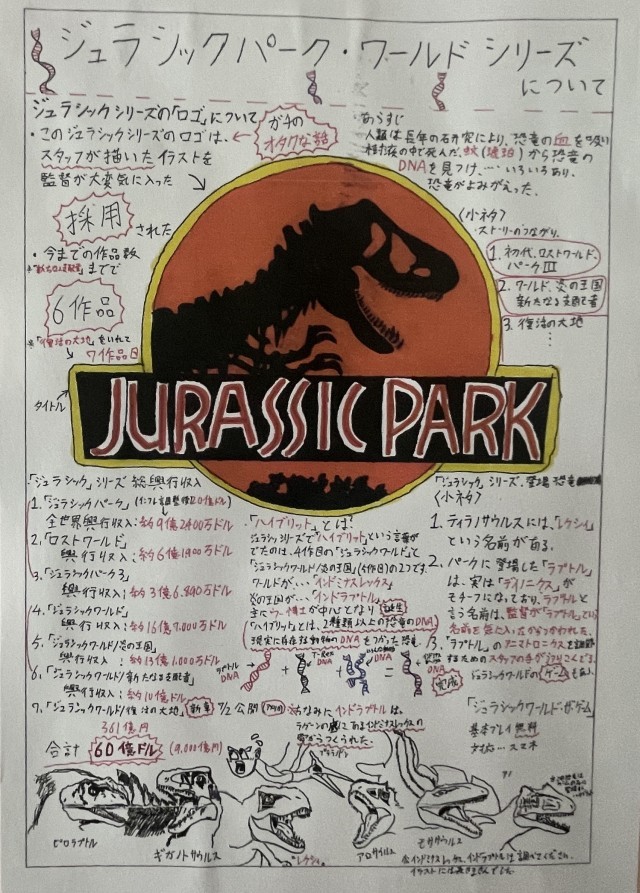 ジュラシックパーク・ワールド シリーズ
について
ジュラシックシリーズの「ロゴ」について
・このジュラシックシリーズのロゴは、
スタッフが描いたイラストを
監督が大変気に入った
採用された
ガチの
オタクな話
・今までの作品数
までで
6作品
※「復活の大地」をいれて
7作品目
あらすじ
人類は長年の研究により、恐竜の血を吸い
樹液の中で死んだ、蚊(琥珀)から恐竜の
DNAを見つけ…いろいろあり、
恐竜がよみがえった。
〈小ネタ〉
ストーリーのつながり、
1. 初代、ロストワールド、
パークⅢ
2. ワールド、炎の王国
新たなる支配者
3. 復活の大地
タイトル
JURASSIC PARK
「ジュラシック」シリーズ 総興行収入
1.「ジュラシックパーク」
全世界興行収入:約9億2400万ドル
2.「ロストワールド」
興行収入:約6億1900万ドル
3.「ジュラシックパーク3」
興行収入:約3億6,890万ドル
4.「ジュラシックワールド」
興行収入:約16億7,000万ドル
5.「ジュラシックワールド/炎の王国」
興行収入:約13億1,000万ドル
6.「ジュラシックワールド/新たなる支配者」
興行収入:約10億ドル
7.「ジュラシックワールド/復活の大地」
7/2公開
361億円
合計 60億ドル (9,000億円)
・「ハイブリット」とは?
ジュラシックシリーズで"ハイブリット"という言葉が
でたのは、4作目の「ジュラシックワールド」と
「ジュラシックワールド/炎の王国」(5作目)の2つです
ワールドが…「インドミナスレックス」
炎の王国が…「インドラプトル」
ウー博士が中心となり 誕生
「ハイブリット」とは、2種類以上の恐竜のDNA
DNA
+
T-Rex
DNA
+
DNA
=
完成
ちなみにインドラプトルは、
ラグーンの底で
つくられた。
「ジュラシック」シリーズ、登場恐竜
〈小ネタ〉
1. ティラノサウルスには、「レクシィ」
という名前がある。
2. パークに登場した「ラプトル」
は、実は「デイノニクス」が
モチーフになっており、ラプトルと
言う名前は、監督が「ラプトル」という
名前を気に入ったからつかわれた。
3.「ラプトル」のアニマトロニクスを
するためのスタッフの手が
ジュラシックワールドのゲームもあり、
「ジュラシックワールド・ザ・ゲーム」
基本プレイ無料
プテラノドン
ピロラプトル
ギガノトサウルス
レクシィ
アロサウルス
モササウルス
※インドミナスレックス、インドラプトルは調べてください。